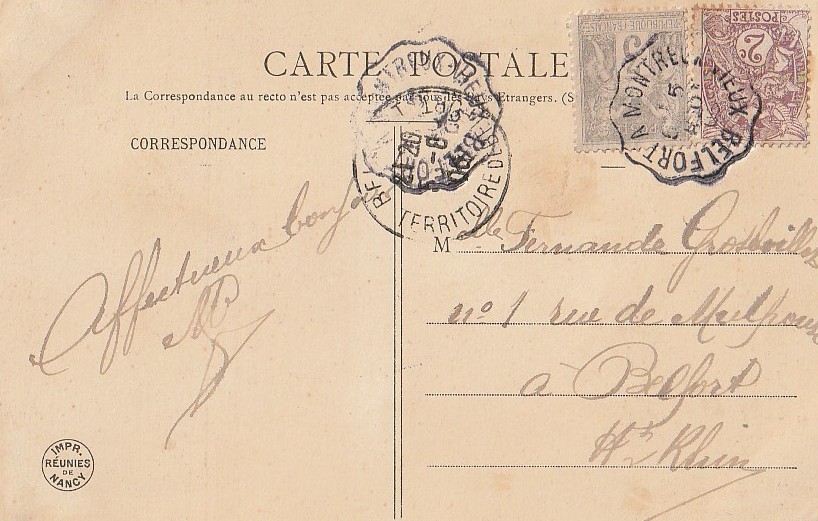 CARTE POSTALE
La Correspondance au recto n'est pas acceptée par tous les pays Etrangers. (S
CORRESPONDANCE
RÉPUBLIQUE FRANÇAISE
POSTES
2
BELFORT A MONTREUX VIEUX
MONTREUX-VIEUX
BELFORT
TERRITOIRE DE BELFORT
Affectueux bonjour
M lle Fernande
no 1 rue de Mulhouse
à Belfort
Ht Rhin
IMPR.
RÉUNIES
DE
NANCY